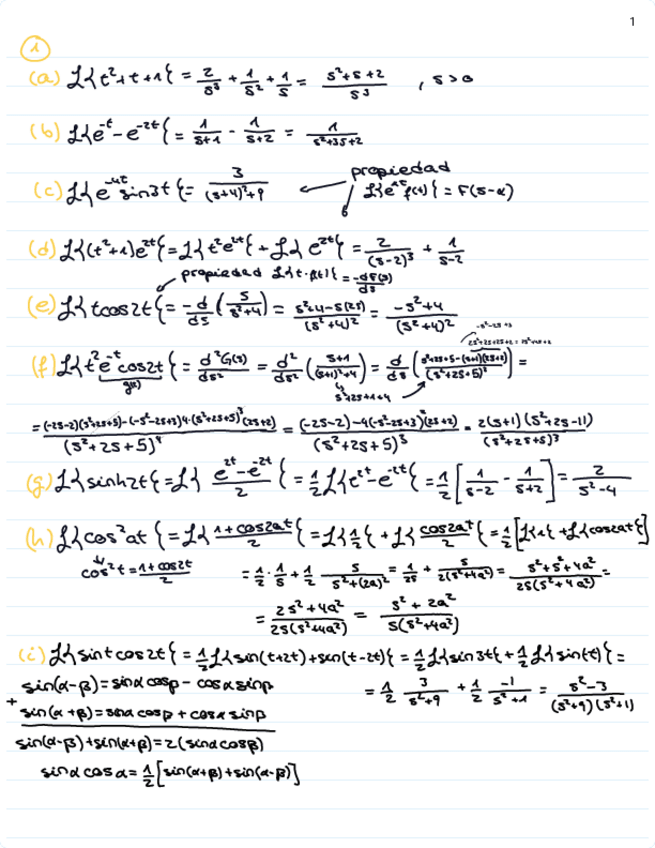 1
①
(a) ℒ{t²+t+1} = 2/s³ + 1/s² + 1/s = (s²+s+2)/s³ , s>0
(b) ℒ{e^-t - e^-2t} = 1/(s+1) - 1/(s+2) = 1/(s²+3s+2)
propiedad
(c) ℒ{e^-4t sin3t} = 3/((s+4)²+9) ← ℒ{e^αt f(t)} = F(s-α)
(d) ℒ{(t²+1)e^2t} = ℒ{t²e^2t} + ℒ{e^2t} = 2/(s-2)³ + 1/(s-2)
propiedad ℒ{t·f(t)} = -dF(s)/ds
(e) ℒ{t cos2t} = -d/ds (s/(s²+4)) = (s²+4-s(2s))/(s²+4)² = (-s²+4)/(s²+4)²
-s²-2s+3
(f) ℒ{t²e^-t cos2t} = d²G(s)/ds² = d²/ds² ((s+1)/((s+1)²+4)) = d/ds ((s²+2s+5-(s+1)(2s+2))/(s²+2s+5)²) =
g(t) s²+2s+1+4
= ((-2s-2)(s²+2s+5)²-(-s²-2s+3)4·(s²+2s+5)(2s+2))/(s²+2s+5)⁴ = ((-2s-2)-4(-s²-2s+3)(2s+2))/(s²+2s+5)³ = 2(s+1)(s²+2s-11)/(s²+2s+5)³
(g) ℒ{sinh2t} = ℒ{(e^2t-e^-2t)/2} = 1/2 ℒ{e^2t-e^-2t} = 1/2 [1/(s-2) - 1/(s+2)] = 2/(s²-4)
(h) ℒ{cos²at} = ℒ{(1+cos2at)/2} = ℒ{1/2} + ℒ{cos2at/2} = 1/2 [ℒ{1} + ℒ{cos2at}]
cos²t = (1+cos2t)/2 = 1/2 · 1/s + 1/2 s/(s²+(2a)²) = 1/2s + s/(2(s²+4a²)) = (s²+s²+4a²)/(2s(s²+4a²)) =
= (2s²+4a²)/(2s(s²+4a²)) = (s²+2a²)/(s(s²+4a²))
(i) ℒ{sint cos2t} = 1/2 ℒ{sin(t+2t)+sen(t-2t)} = 1/2 ℒ{sin3t} + 1/2 ℒ{sin(t)} =
sin(α-β)=sinα cosβ - cosα sinβ = 1/2 3/(s²+9) + 1/2 -1/(s²+1) = (s²-3)/((s²+9)(s²+1))
+ sin(α+β)=sinα cosβ + cosα sinβ
sin(α-β)+sin(α+β)=2(sinα cosβ)
sinα cosα = 1/2 [sin(α+β)+sin(α-β)]